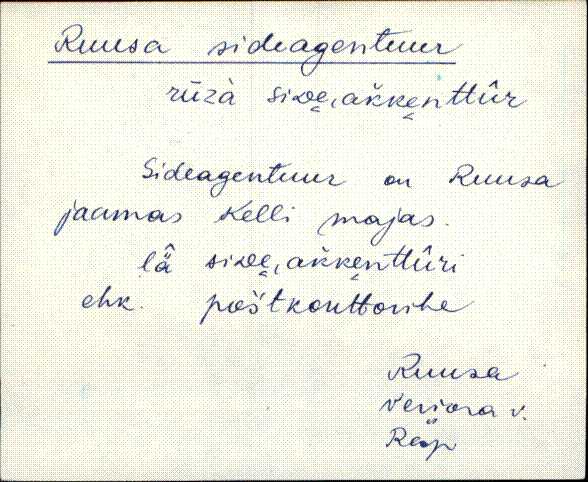 Ruusa sideagentuur
rūzà siᴅe̬, akk̆e̬nttûr
Sideagentuur on Ruusa
jaamas Kelli majas.
l̬ä̂ siᴅe̬, akk̆e̬nttûri
ehk. poštkonttorihe
Ruusa
Veriora v.
Räp